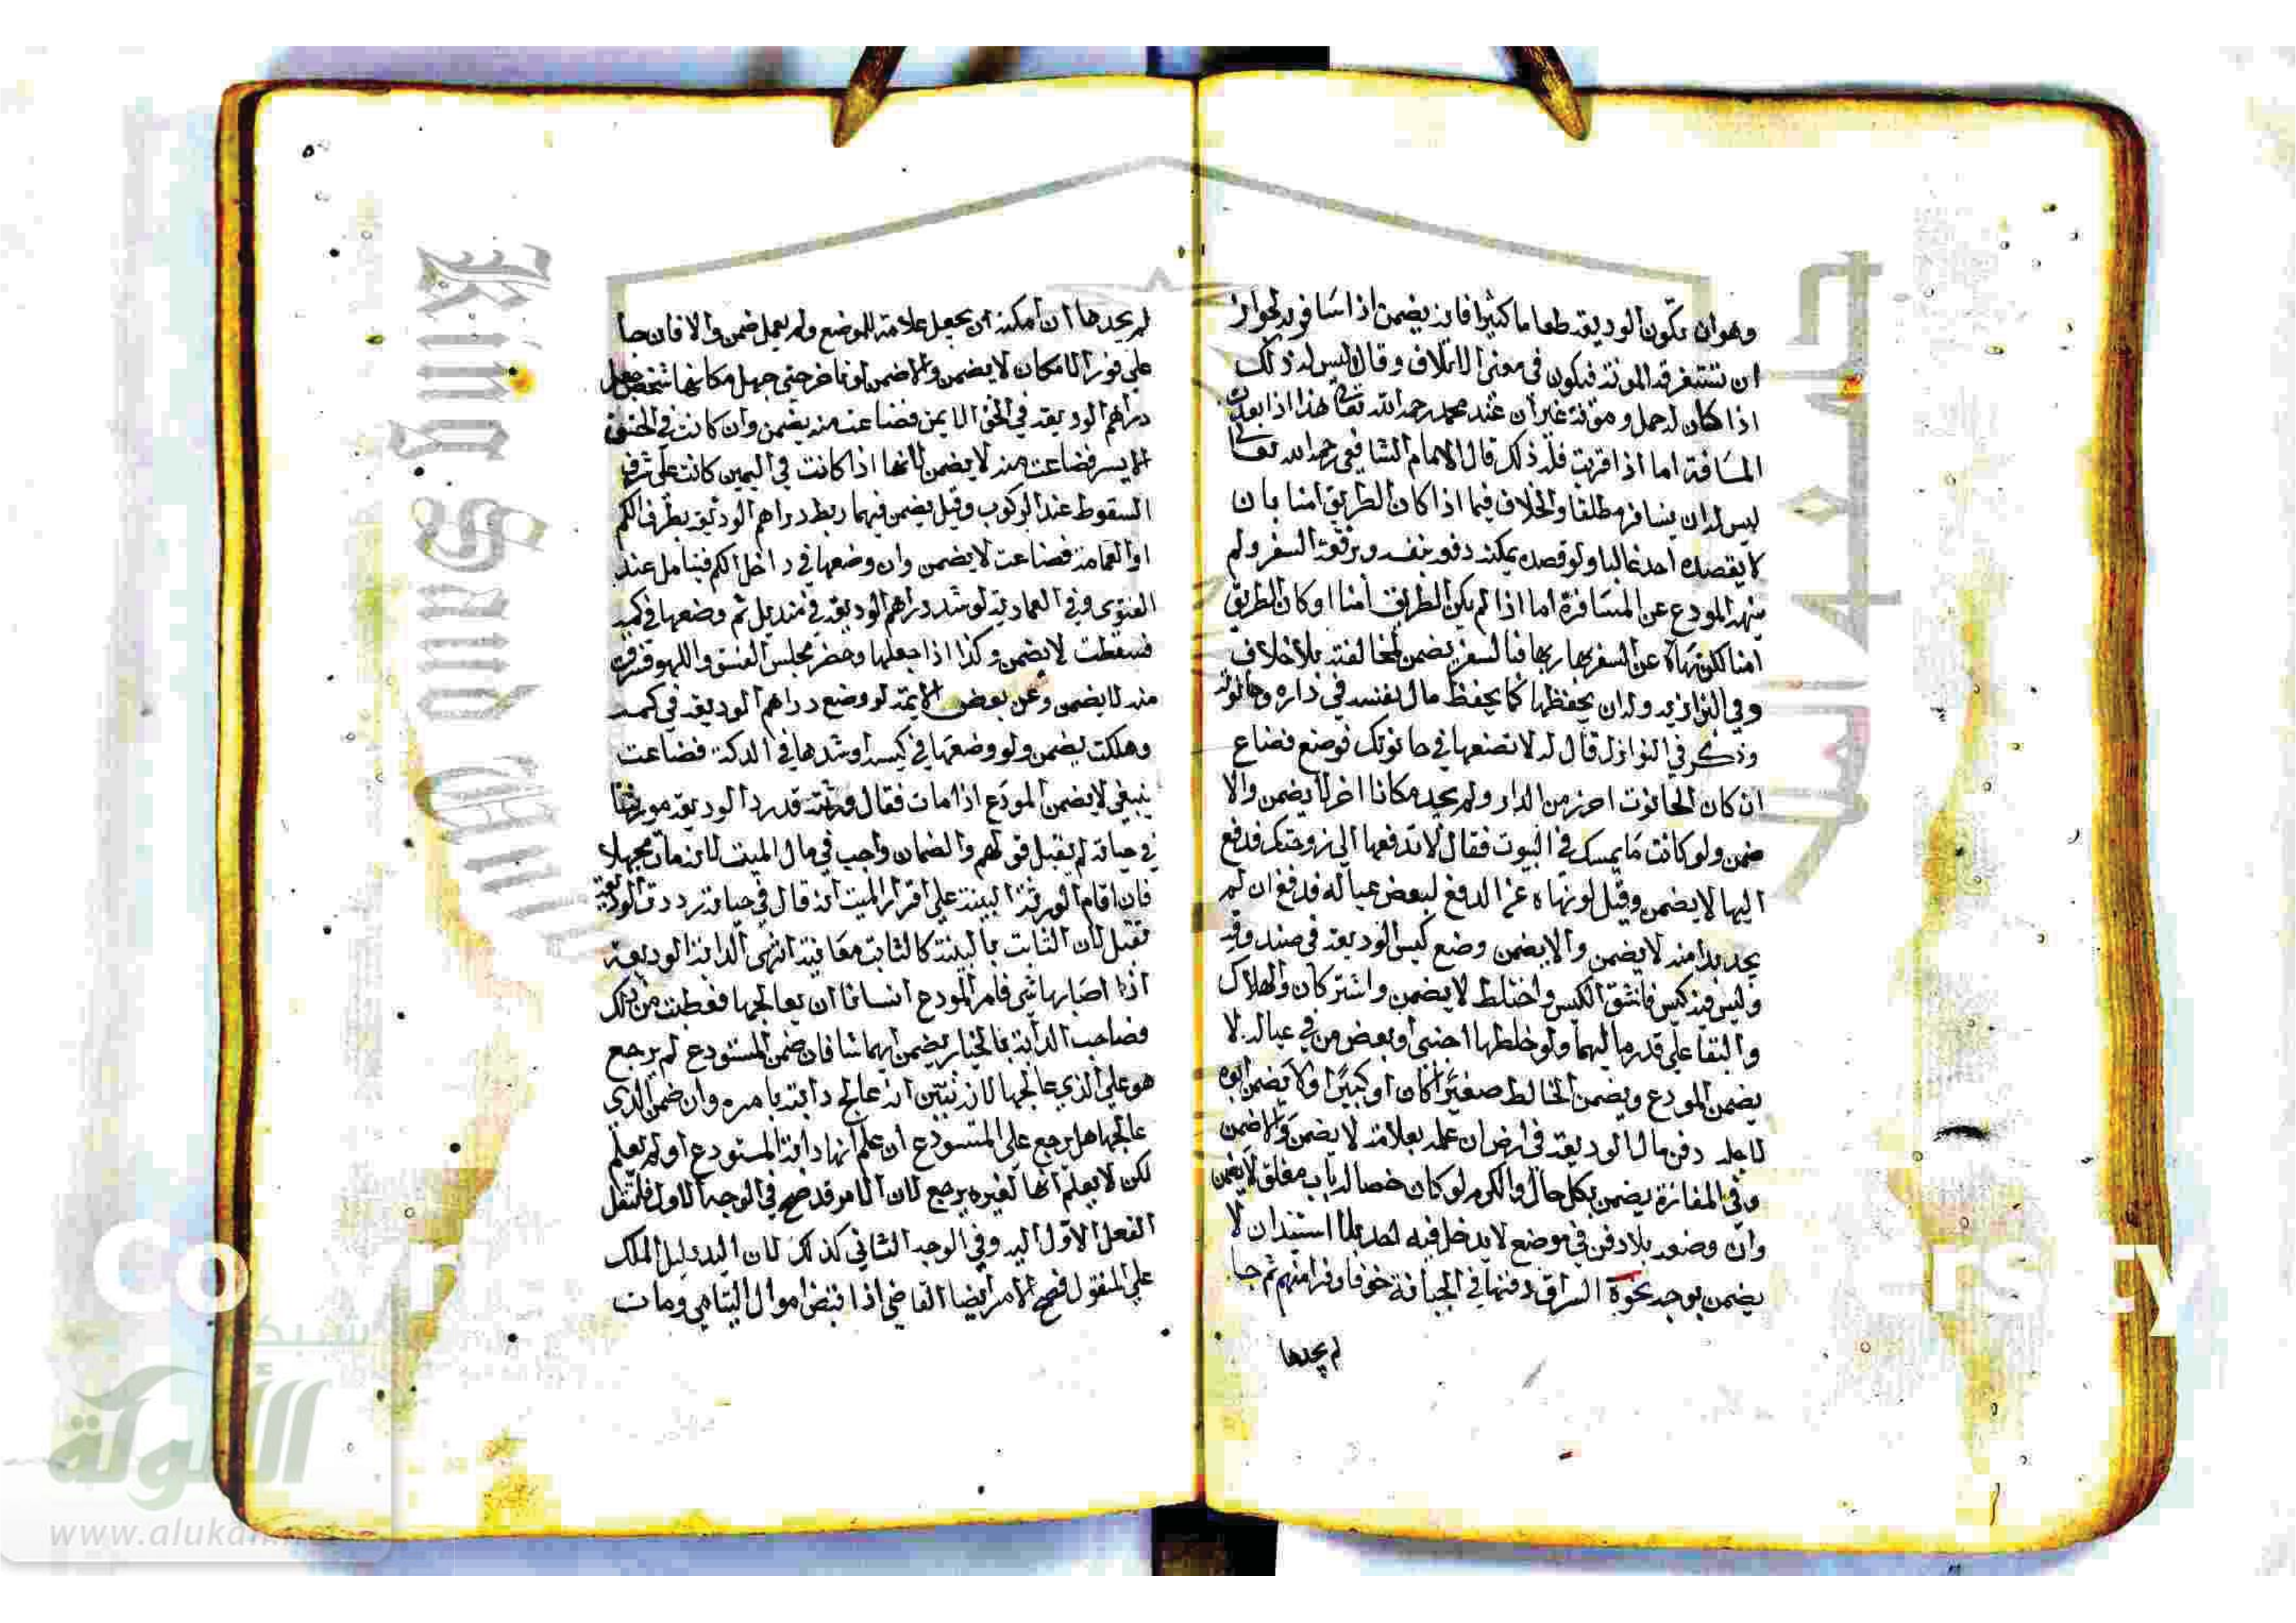 وهو ان تكون الوديعة طعاما كثيرا فانه يضمن اذا سافر به لجواز
ان تستغرقه المونة فيكون في معنى الاتلاف وقال ليس له ذلك
اذا كان له حمل ومؤنة غير ان عند محمد رحمه الله تعالى هذا اذا بعدت
المسافة اما اذا قربت فله ذلك قال الامام الشافعي رحمه الله تعالى
ليس له ان يسافر مطلقا والخلاف فيما اذا كان الطريق امنا بان
لا يقصده احد غالبا ولو قصده يمكنه دفعه بنفسه وبرفقة السفر ولم
ينهه المودع عن المسافرة اما اذا لم يكن الطريق امنا او كان الطريق
امنا لكن نهاه عن السفر بها فسافر يضمن لمخالفته بلا خلاف
وفي البزازية وله ان يحفظها كما يحفظ مال نفسه في داره وحانوته
وذكر في النوازل قال له لا تضعها في حانوتك فوضع فضاع
ان كان الحانوت احرز من الدار ولم يجد مكانا اخر لا يضمن والا
ضمن ولو كانت مما يمسك في البيوت فقال لا تدفعها الى زوجتك فدفع
اليها لا يضمن وقيل لو نهاه عن الدفع لبعض عياله فدفع ان لم
يجد بدا منه لا يضمن والا يضمن وضع كيس الوديعة في صندوقه
وليس فيه كيس فانشق الكيس واختلط لا يضمن واشتركا والهلاك
والبقا على قدر ماليهما ولو خلطها اجنبي او بعض من في عياله لا
يضمن المودع ويضمن الخالط صغيرا كان او كبيرا ولا يضمن ابوه
لاجله دفن مال الوديعة في ارض ان علمه بعلامة لا يضمن والا ضمن
وفي المفازة يضمن بكل حال والكرم لو كان حصا له باب مغلق لا يضمن
وان وضعه بلا دفن في موضع لا يدخل فيه احد بلا استيذان لا
يضمن توجه نحوه السراق دفنها في الجبانة خوفا وفر منهم ثم جا
لم يجدها
لم يجدها ان امكنه ان يجعل علامة للموضع ولم يعمل ضمن والا فان جا
على فور الامكان لا يضمن والا ضمن لو تاخر حتى جهل مكانها شخص جعل
دراهم الوديعة في الخف الايمن فضاعت منه يضمن وان كانت في الخف
الايسر فضاعت منه لا يضمن لانها اذا كانت في اليمين كانت على شرف
السقوط عند الركوب وقيل يضمن فيهما ربط دراهم الوديعة بطرف الكم
او العمامة فضاعت لا يضمن وان وضعها في داخل الكم فيتامل عند
الفتوى وفي العمادية لو شد دراهم الوديعة في منديل ثم وضعها في كمه
فسقطت لا يضمن وكذا اذا جعلها وحضر مجلس الفسق واللهو فسرق
منه لا يضمن وعن بعض الايمة لو وضع دراهم الوديعة في كمه
وهلكت يضمن ولو وضعها في كيسه او شدها في الدكة فضاعت
ينبغي لا يضمن المودع اذا مات فقال ورثته قد رد الوديعة مورثنا
في حياته لم يقبل قولهم والضمان واجب في مال الميت لانه مات مجهلا
فان اقام الورثة البينة على اقرار الميت انه قال في حياته رددت الوديعة
تقبل لان الثابت بالبينة كالثابت معاينة انتهى الدابة الوديعة
اذا اصابها شي فامر المودع انسانا ان يعالجها فعطبت من ذلك
فصاحب الدابة بالخيار يضمن ايهما شا فان ضمن المستودع لم يرجع
هو على الذي عالجها لانه تبين انه عالج دابته بامره وان ضمن الذي
عالجها هل يرجع على المستودع ان علم انها دابة المستودع او لم يعلم
لكن لا يعلم انها لغيره يرجع لان الامر قد صح في الوجه الاول فانتقل
الفعل الاول اليه وفي الوجه الثاني كذلك لان اليد دليل الملك
على المنقول فصح الامر ايضا القاضي اذا قبض اموال اليتامى ومات
شبكة
الألوكة
www.alukah.net